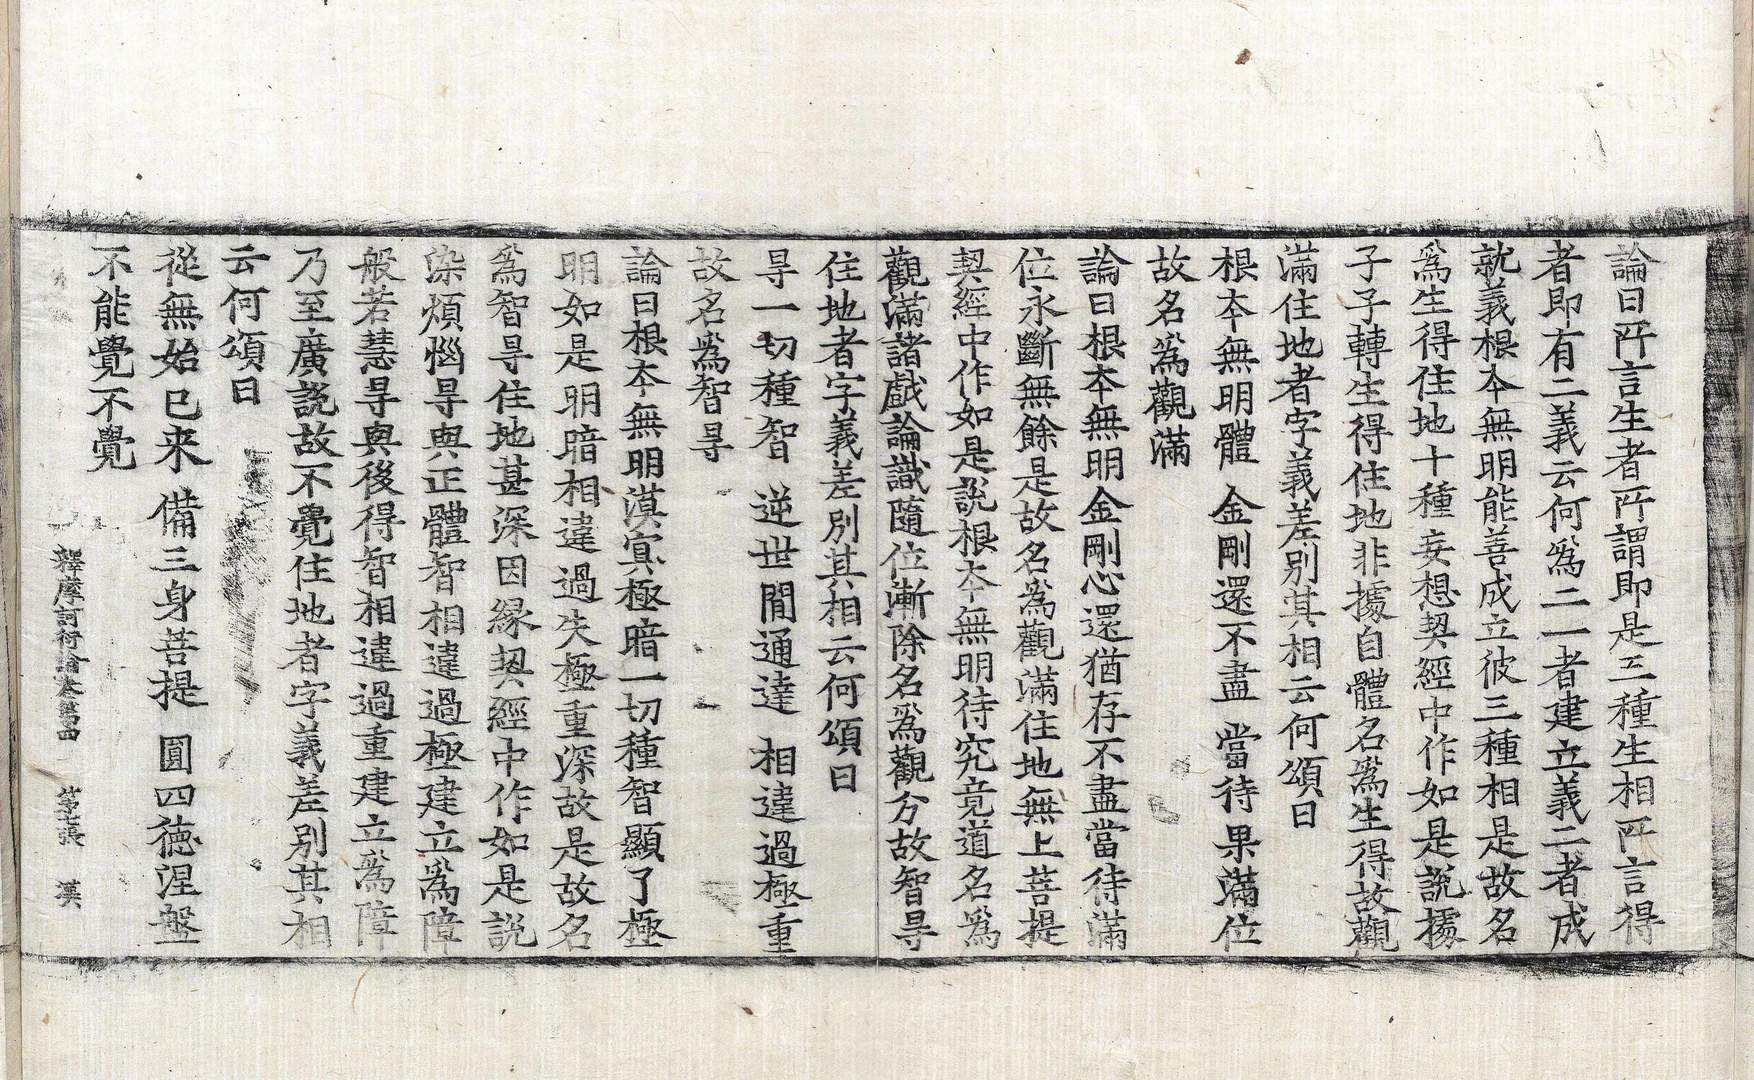 論曰所言生者所謂即是三種生相所言得
者即有二義云何為二一者建立義二者成
就義根本無明能善成立彼三種相是故名
為生得住地十種妄想契經中作如是說據
子子轉生得住地非據自體名為生得故觀
滿住地者字義差別其相云何頌曰
根本無明體 金剛還不盡 當待果滿位
故名為觀滿
論曰根本無明金剛心還猶存不盡當待滿
位永斷無餘是故名為觀滿住地無上菩提
契經中作如是說根本無明待究竟道名為
觀滿諸戲論識隨位漸除名為觀分故智㝵
住地者字義差別其相云何頌曰
㝵一切種智 逆世間通達 相違過極重
故名為智㝵
論曰根本無明漠㝠極暗一切種智顯了極
明如是明暗相違過失極重深故是故名
為智㝵住地甚深因緣契經中作如是說
染煩惱㝵與正體智相違過極建立為障
般若慧㝵與後得智相違過重建立為障
乃至廣說故不覺住地者字義差別其相
云何頌曰
從無始已来 備三身菩提 圓四德涅盤
不能覺不覺
釋摩訶衍論卷第四 第七張 漢